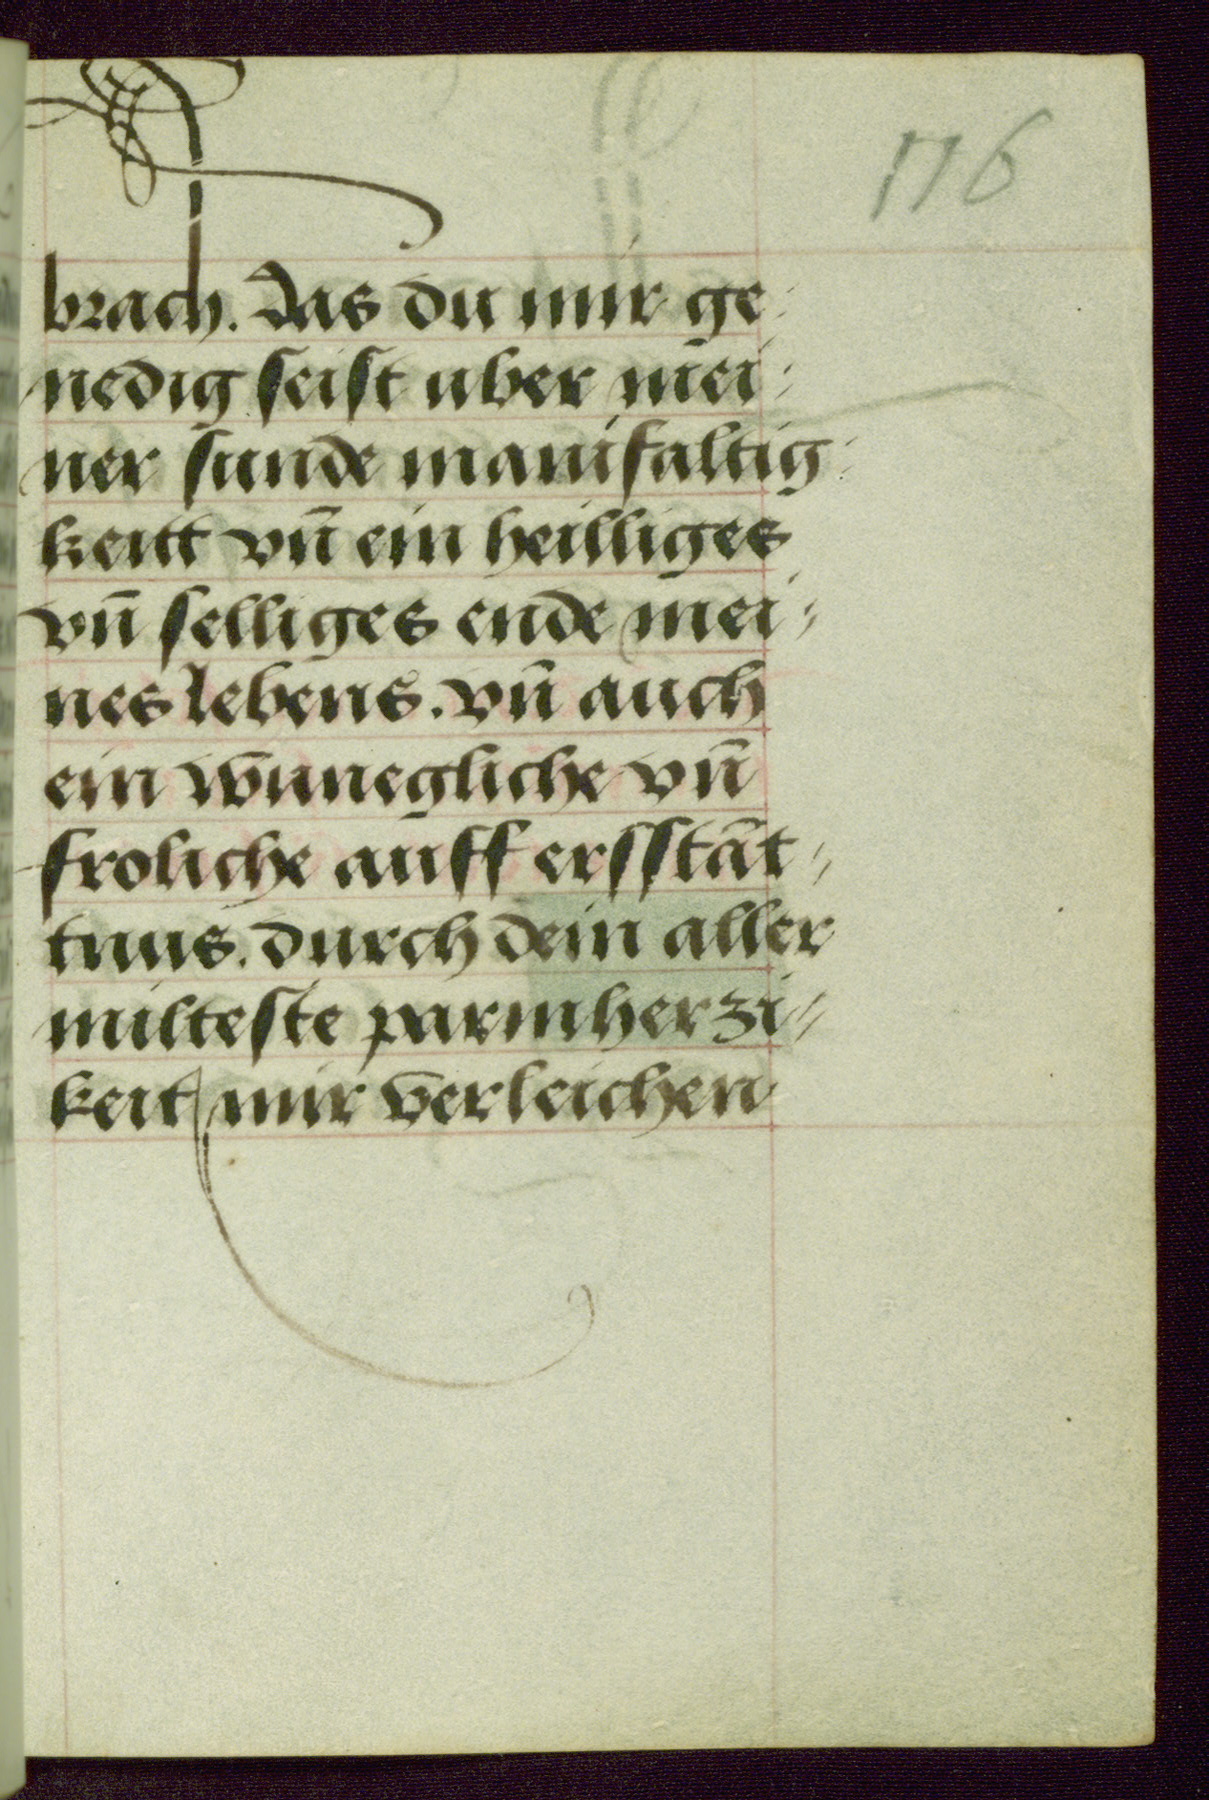 116
brach. Das du mir ge⸗
nedig seist uber mei⸗
ner sunde manifaltig⸗
keitt vn̄ ein heilliges
vn̄ selliges ende mei⸗
nes lebens. vn̄ auch
ein wūnegliche vn̄
froliche auff ersstāt⸗
tnus. durch dein aller
milteste parmherzi⸗
keit mir verleichen